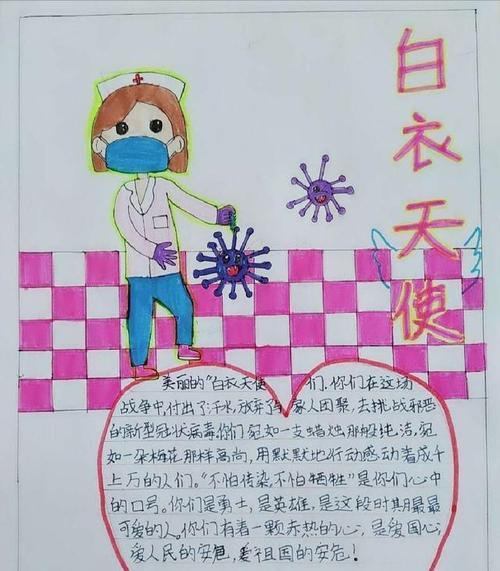 白衣天使
美丽的“白衣天使 们,你们在这场
战争中,付出了汗水,放弃了与家人团聚,去挑战邪恶
的新型冠状病毒你们宛如一支蜡烛那般纯洁,宛
如一朵梅花那样高尚,用默默地行动感动者成千
上万的人们。“不怕传染,不怕牺牲”是你们心中
的口号。你们是勇士,是英雄,是这段时期最最
可爱的人。你们有着一颗赤热的心,是爱国心,
爱人民的安危,爱祖国的安危!